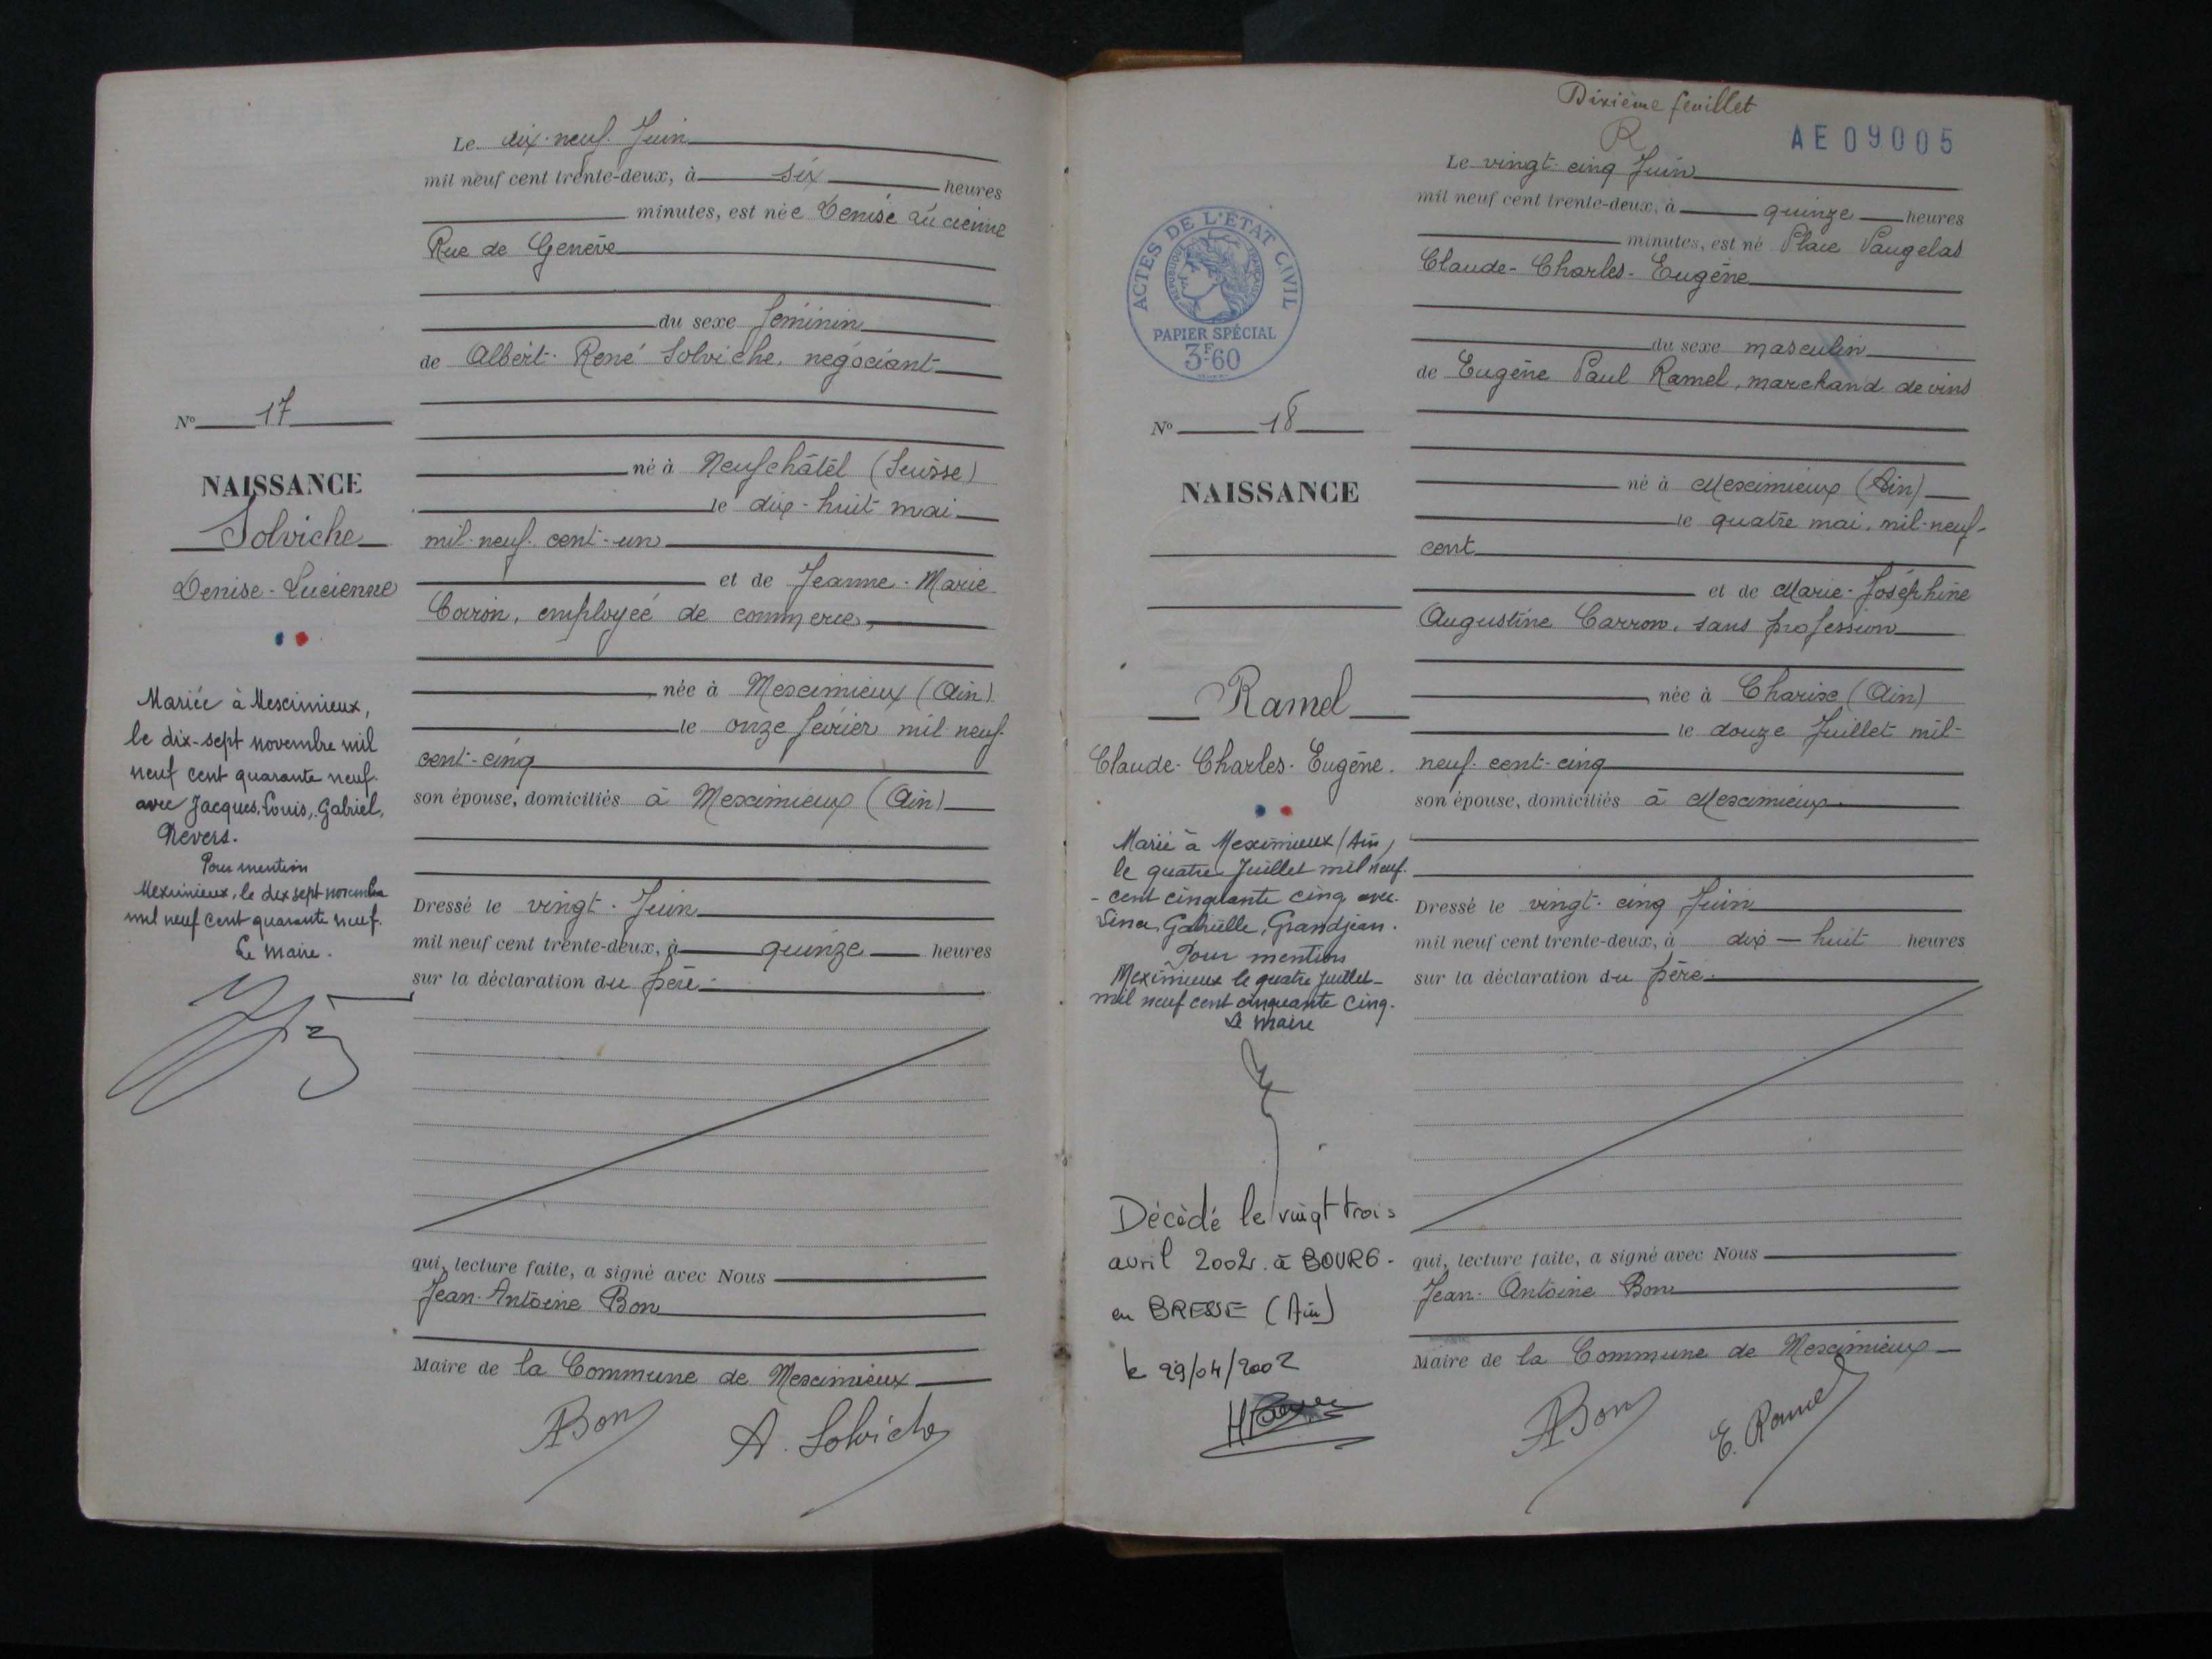 Le dix-neuf Juin
mil neuf cent trente-deux, à six heures
minutes, est née Denise Lucienne
Rue de Genève
du sexe féminin
de Albert-René Solviche, négociant
né à Neufchâtel (Suisse)
le dix-huit mai
mil-neuf-cent-un
et de Jeanne-Marie
employée de commerce,
née à Meximieux (Ain)
le onze février mil neuf
cent-cinq
son épouse, domiciliés à Meximieux (Ain)
Dressé le vingt-Juin
mil neuf cent trente-deux, à quinze heures
sur la déclaration du père
qui, lecture faite, a signé avec Nous
Jean-Antoine Bon
Maire de la Commune de Meximieux
ABon
A. Solviche
No 17
NAISSANCE
Solviche
Denise-Lucienne
Mariée à Meximieux,
le dix-sept novembre mil
neuf cent quarante neuf
avec Jacques, Louis, Gabriel,
Nevers.
Pour mention
Meximieux, le dix sept novembre
mil neuf cent quarante neuf.
Le Maire.
Dixième feuillet
R
AE09005
Le vingt-cinq Juin
mil neuf cent trente-deux, à quinze heures
minutes, est né Place Vaugelas
Claude-Charles-Eugène
du sexe masculin
de Eugène Paul Ramel, marchand de vins
né à Meximieux (Ain)
le quatre mai, mil-neuf-
cent
et de Marie-Joséphine
Augustine Carron, sans profession
née à Charix (Ain)
le douze Juillet mil-
neuf-cent-cinq
son épouse, domiciliés à Meximieux
Dressé le vingt-cinq Juin
mil neuf cent trente-deux, à dix-huit heures
sur la déclaration du père
qui, lecture faite, a signé avec Nous
Jean-Antoine Bon
Maire de la Commune de Meximieux
ABon
E. Ramel
ACTES DE L'ÉTAT CIVIL
RÉPUBLIQUE FRANÇAISE
PAPIER SPÉCIAL
3F60
No 18
NAISSANCE
Ramel
Claude-Charles-Eugène.
Marié à Meximieux (Ain)
le quatre Juillet mil neuf-
-cent cinquante cinq avec
Gabrielle, Grandjean.
Pour mention
Meximieux le quatre Juillet-
mil neuf cent cinquante cinq.
Le Maire
Décédé le vingt trois
avril 2002 à BOURG-
en BRESSE (Ain)
le 29/04/2002